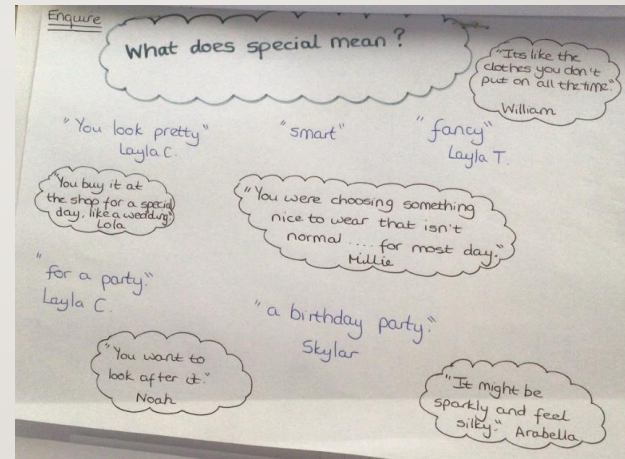 Enquire
What does special mean?
"Its like the
clothes you don't
put on all the time."
William
"You look pretty"
Layla C.
"smart"
"fancy"
Layla T.
"You buy it at
the shop for a special
day, like a wedding"
Lola
"You were choosing something
nice to wear that isn't
normal .... for most day."
Millie
"for a party."
Layla C.
"a birthday party."
Skylar
"You want to
look after it."
Noah
"It might be
sparkly and feel
silky." Arabella